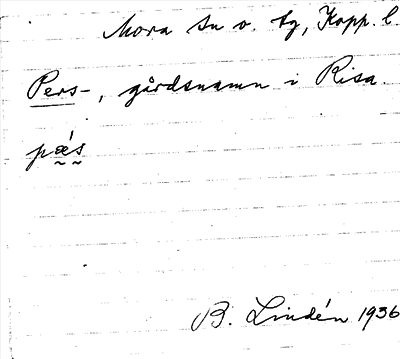 Mora sn o. tg, Kopp. l.
Pers-, gårdsnamn i Risa.
pǽs
B. Lindén 1936